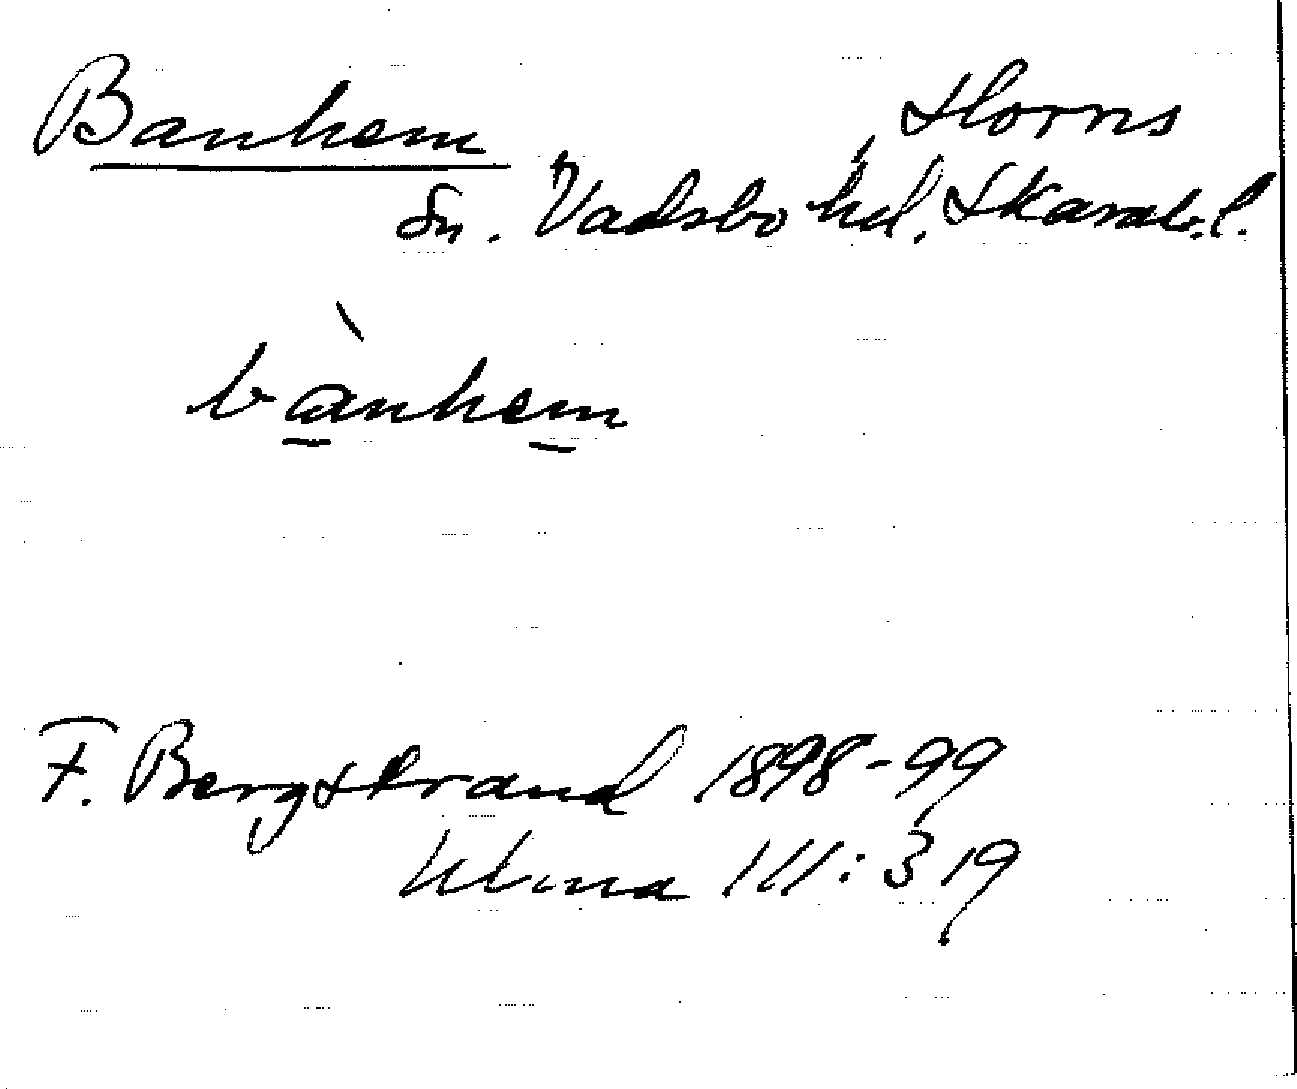 Banhem, Horns
Sn. Vadsbo hd. Skarab.l.
bànhem
F. Bergstrand 1898-99
III: 319